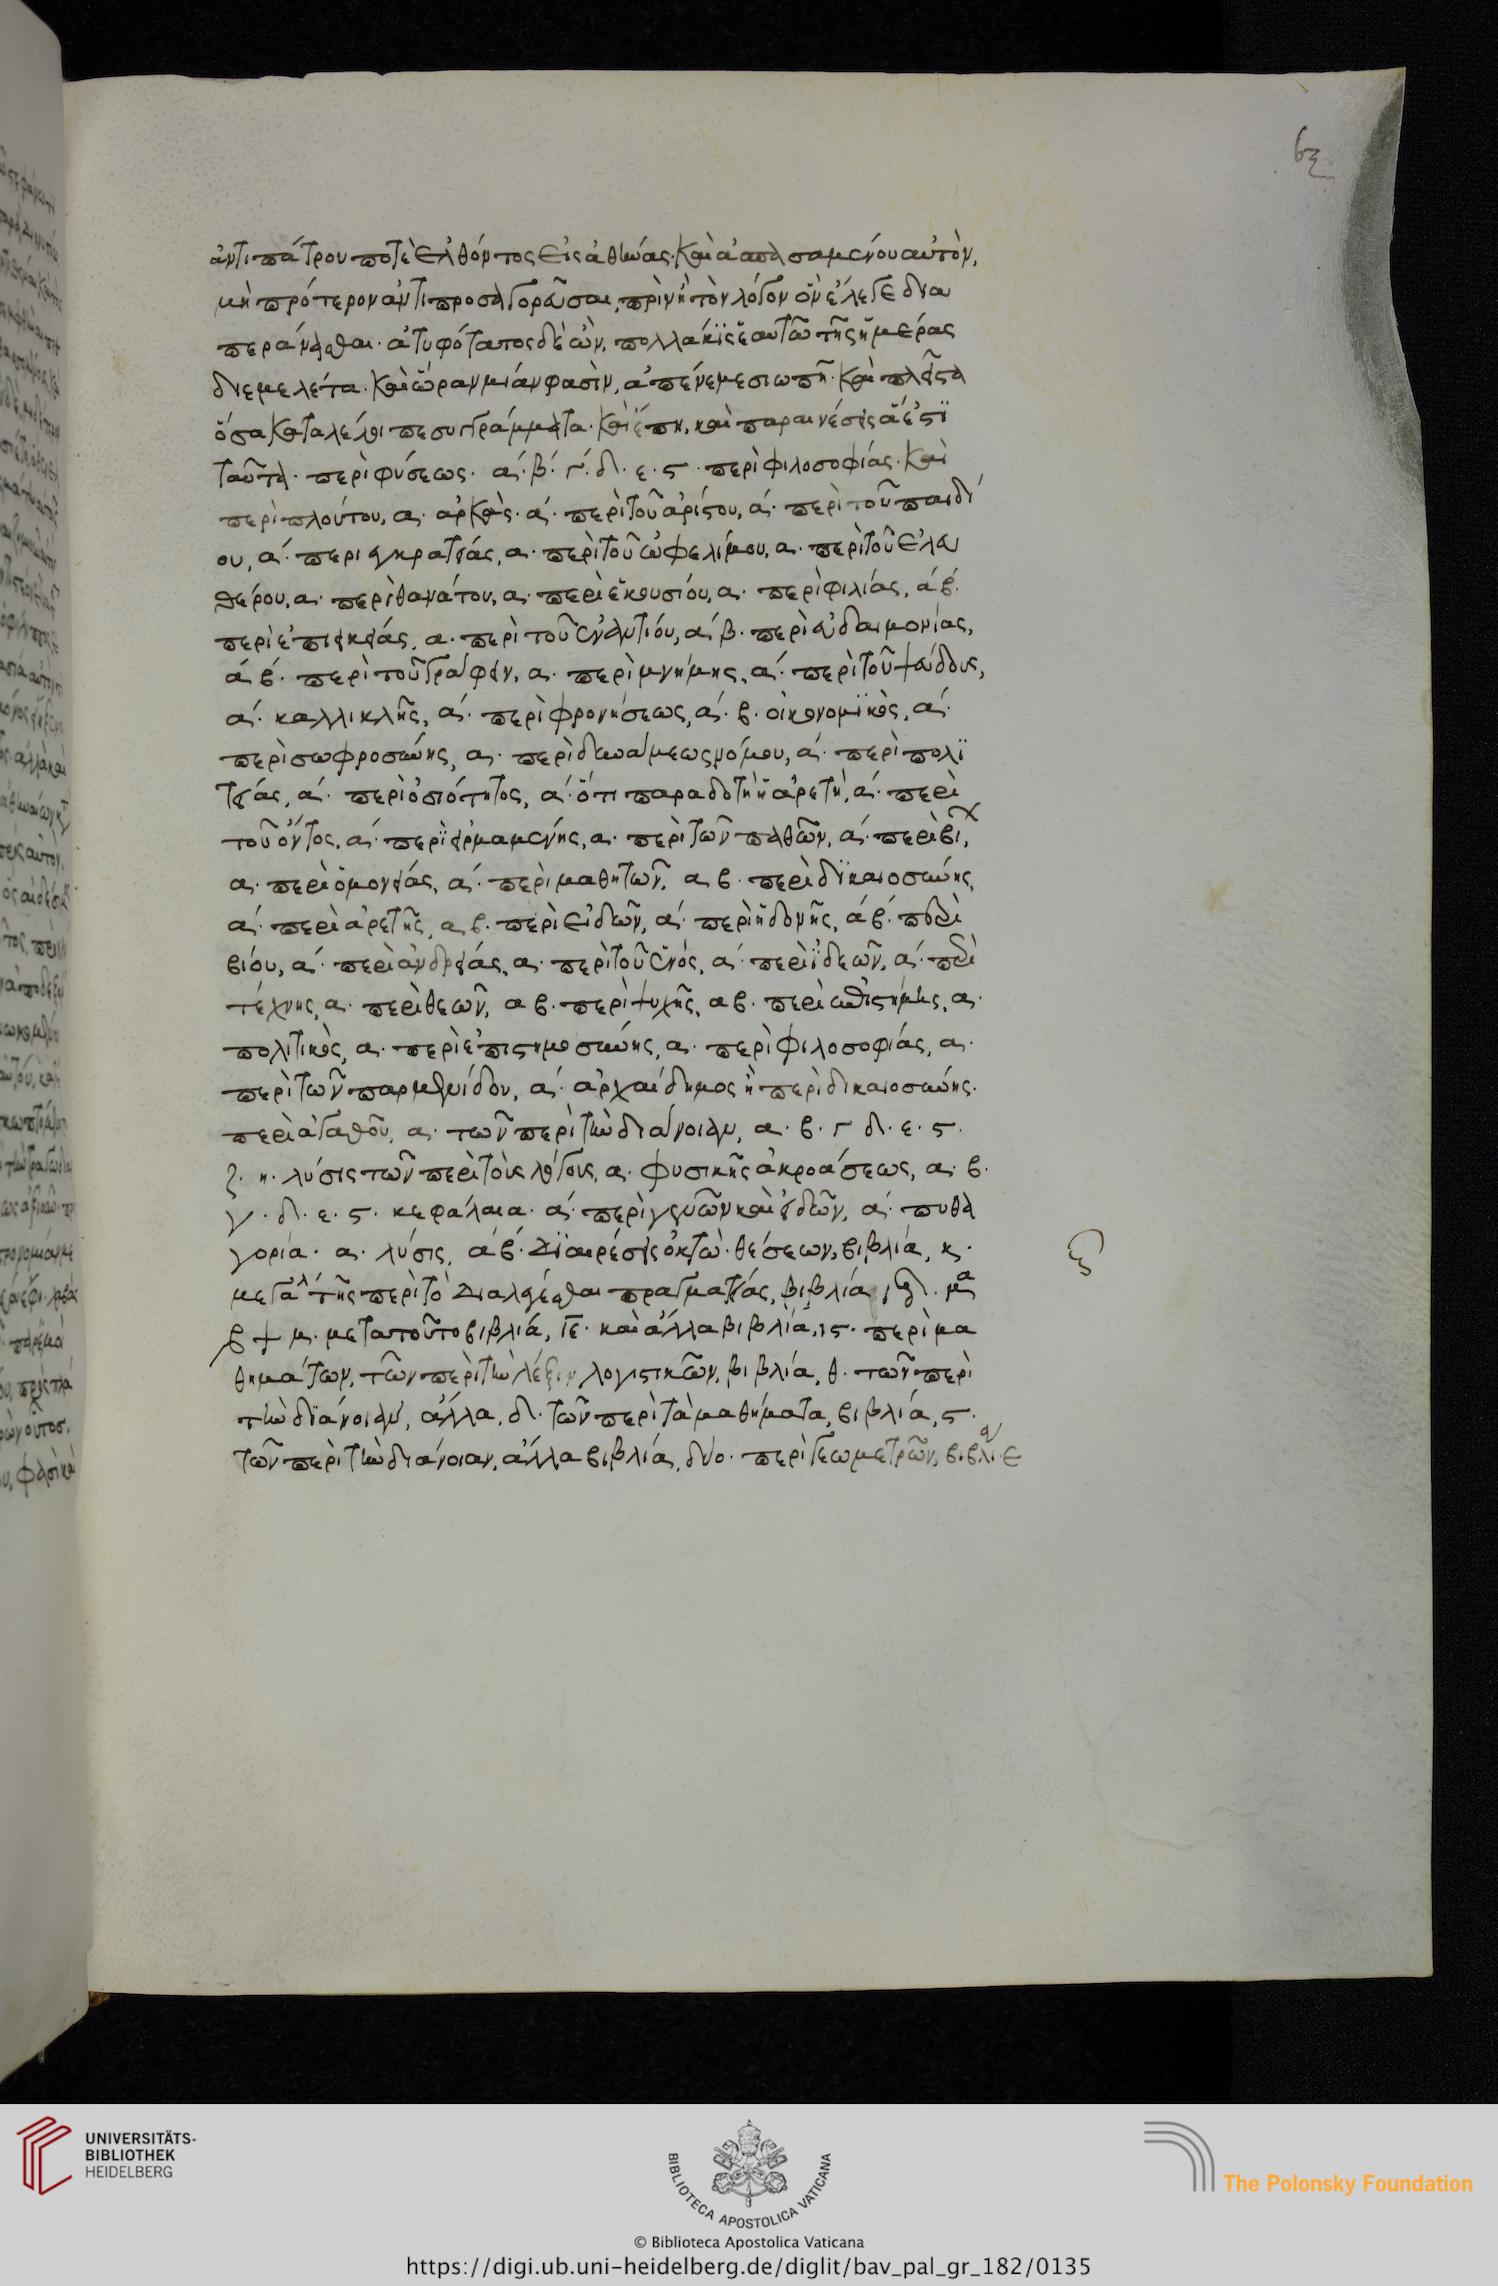 63
ἀντιπάτρου ποτὲ ἐλθόντος εἰς ἀθήνας. καὶ ἀσπασαμένου αὐτὸν,
μὴ πρότερον ἀντιπροσαγορεῦσαι, πρὶν ἢ τὸν λόγον ὃν ἔλεγε δια
περάνασθαι. ἀτυφότατος δὲ ὢν, πολλάκϊς ἑαυτῶ τῆς ἡμέρας
διεμελέτα. καὶ ὥραν μίαν φασὶν, ἀπένεμε σιωπῆ. καὶ πλεῖστα
ὅσα καταλέλοιπε συγγράμματα. καὶ ἔπη, καὶ παραινέσεις ἅ ἐστϊ
ταῦτα. περὶ φύσεως. α. β. γ. δ. ε. ς. περὶ φιλοσοφίας. καὶ
περὶ πλούτου, α. ἀρκὰς. α. περὶ τοῦ ἀρίστου, α. περὶ τοῦ παιδί
ου, α. περι εγκρατείας, α. περὶ τοῦ ὠφελίμου, α. περὶ τοῦ ἐλευ
θέρου, α. περὶ θανάτου, α. περὶ ἑκουσίου, α. περὶ φιλίας, α β.
περὶ ἐπιεικείας, α. περὶ τοῦ ἐναντίου, α β. περὶ εὐδαιμονίας,
α β. περὶ τοῦ γράφειν, α. περὶ μνήμης, α. περὶ τοῦ ψεύδους,
α. καλλικλῆς, α. περὶ φρονήσεως, α. β. οἰκονομϊκὸς, α.
περὶ σωφροσύνης, α. περὶ δυνάμεως νόμου, α. περὶ πολϊ
τείας, α. περὶ ὁσιότητος, α. ὅτι παραδοτὴ ἡ ἀρετὴ, α. περὶ
τοῦ ὄντος, α. περὶ εἱρμαμένης, α. περὶ τῶν παθῶν, α. περὶ βί,
α. περὶ ὁμονοίας, α. περὶ μαθητῶν, α β. περὶ δϊκαιοσύνης,
α. περὶ ἀρετῆς, α β. περὶ εἰδῶν, α. περὶ ἡδονῆς, α β. περὶ
βίου, α. περὶ ἀνδρείας, α. περὶ τοῦ ἑνός, α. περὶ ἰδεῶν, α. περὶ
τέχνης, α. περὶ θεῶν, α β. περὶ ψυχῆς, α β. περὶ ἐπιστήμης, α.
πολιτικὸς, α. περὶ ἐπιστημοσύνης, α. περὶ φιλοσοφίας, α.
περὶ τῶν παρμενίδου, α. ἀρχαίδημος ἢ περὶ δικαιοσύνης.
περὶ ἀγαθοῦ, α. τῶν περὶ τὴν διάνοιαν, α. β. γ δ. ε. ς.
ζ. η. λύσις τῶν περὶ τοὺς λόγους, α. φυσικῆς ἀκροάσεως, α. β.
γ. δ. ε. ς. κεφάλαια. α. περὶ γενῶν καὶ εἰδῶν, α. πυθα
γορία. α. λύσις, α β. διαιρέσεις ὀκτὼ. θέσεων, βιβλία, κ.
μεγαλ τῆς περὶ τὸ διαλέγεσθαι πραγματείας, βιβλία ιδ. μα
β ψ μ. μετα τοῦτο βιβλία, ιε. καὶ ἄλλα βιβλία, ις. περὶ μα
θημάτων, τῶν περὶ τὴν λέξιν λογιστικῶν, βιβλία, θ. τῶν περὶ
τὴν διάνοιαν, ἄλλα, δ. τῶν περὶ τὰ μαθήματα, βιβλία, ς.
τῶν περὶ τὴν διάνοιαν, ἄλλα βιβλία, δύο. περὶ γεωμετρῶν, βιβλια ε
UNIVERSITÄTS-
BIBLIOTHEK
HEIDELBERG
BIBLIOTECA APOSTOLICA VATICANA
© Biblioteca Apostolica Vaticana
The Polonsky Foundation
https://digi.ub.uni-heidelberg.de/diglit/bav_pal_gr_182/0135